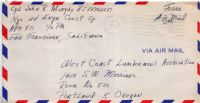 Cpl John R Murphy
Hq 2d Engr Const Gp
APO 971 % PM
San Francisco, California
Free
Air Mail
VIA AIR MAIL
West Coast Lumbermens Association
1410 S.W. Morrison
Room No 501
Portland 5 Oregon
VIA AIR MAIL